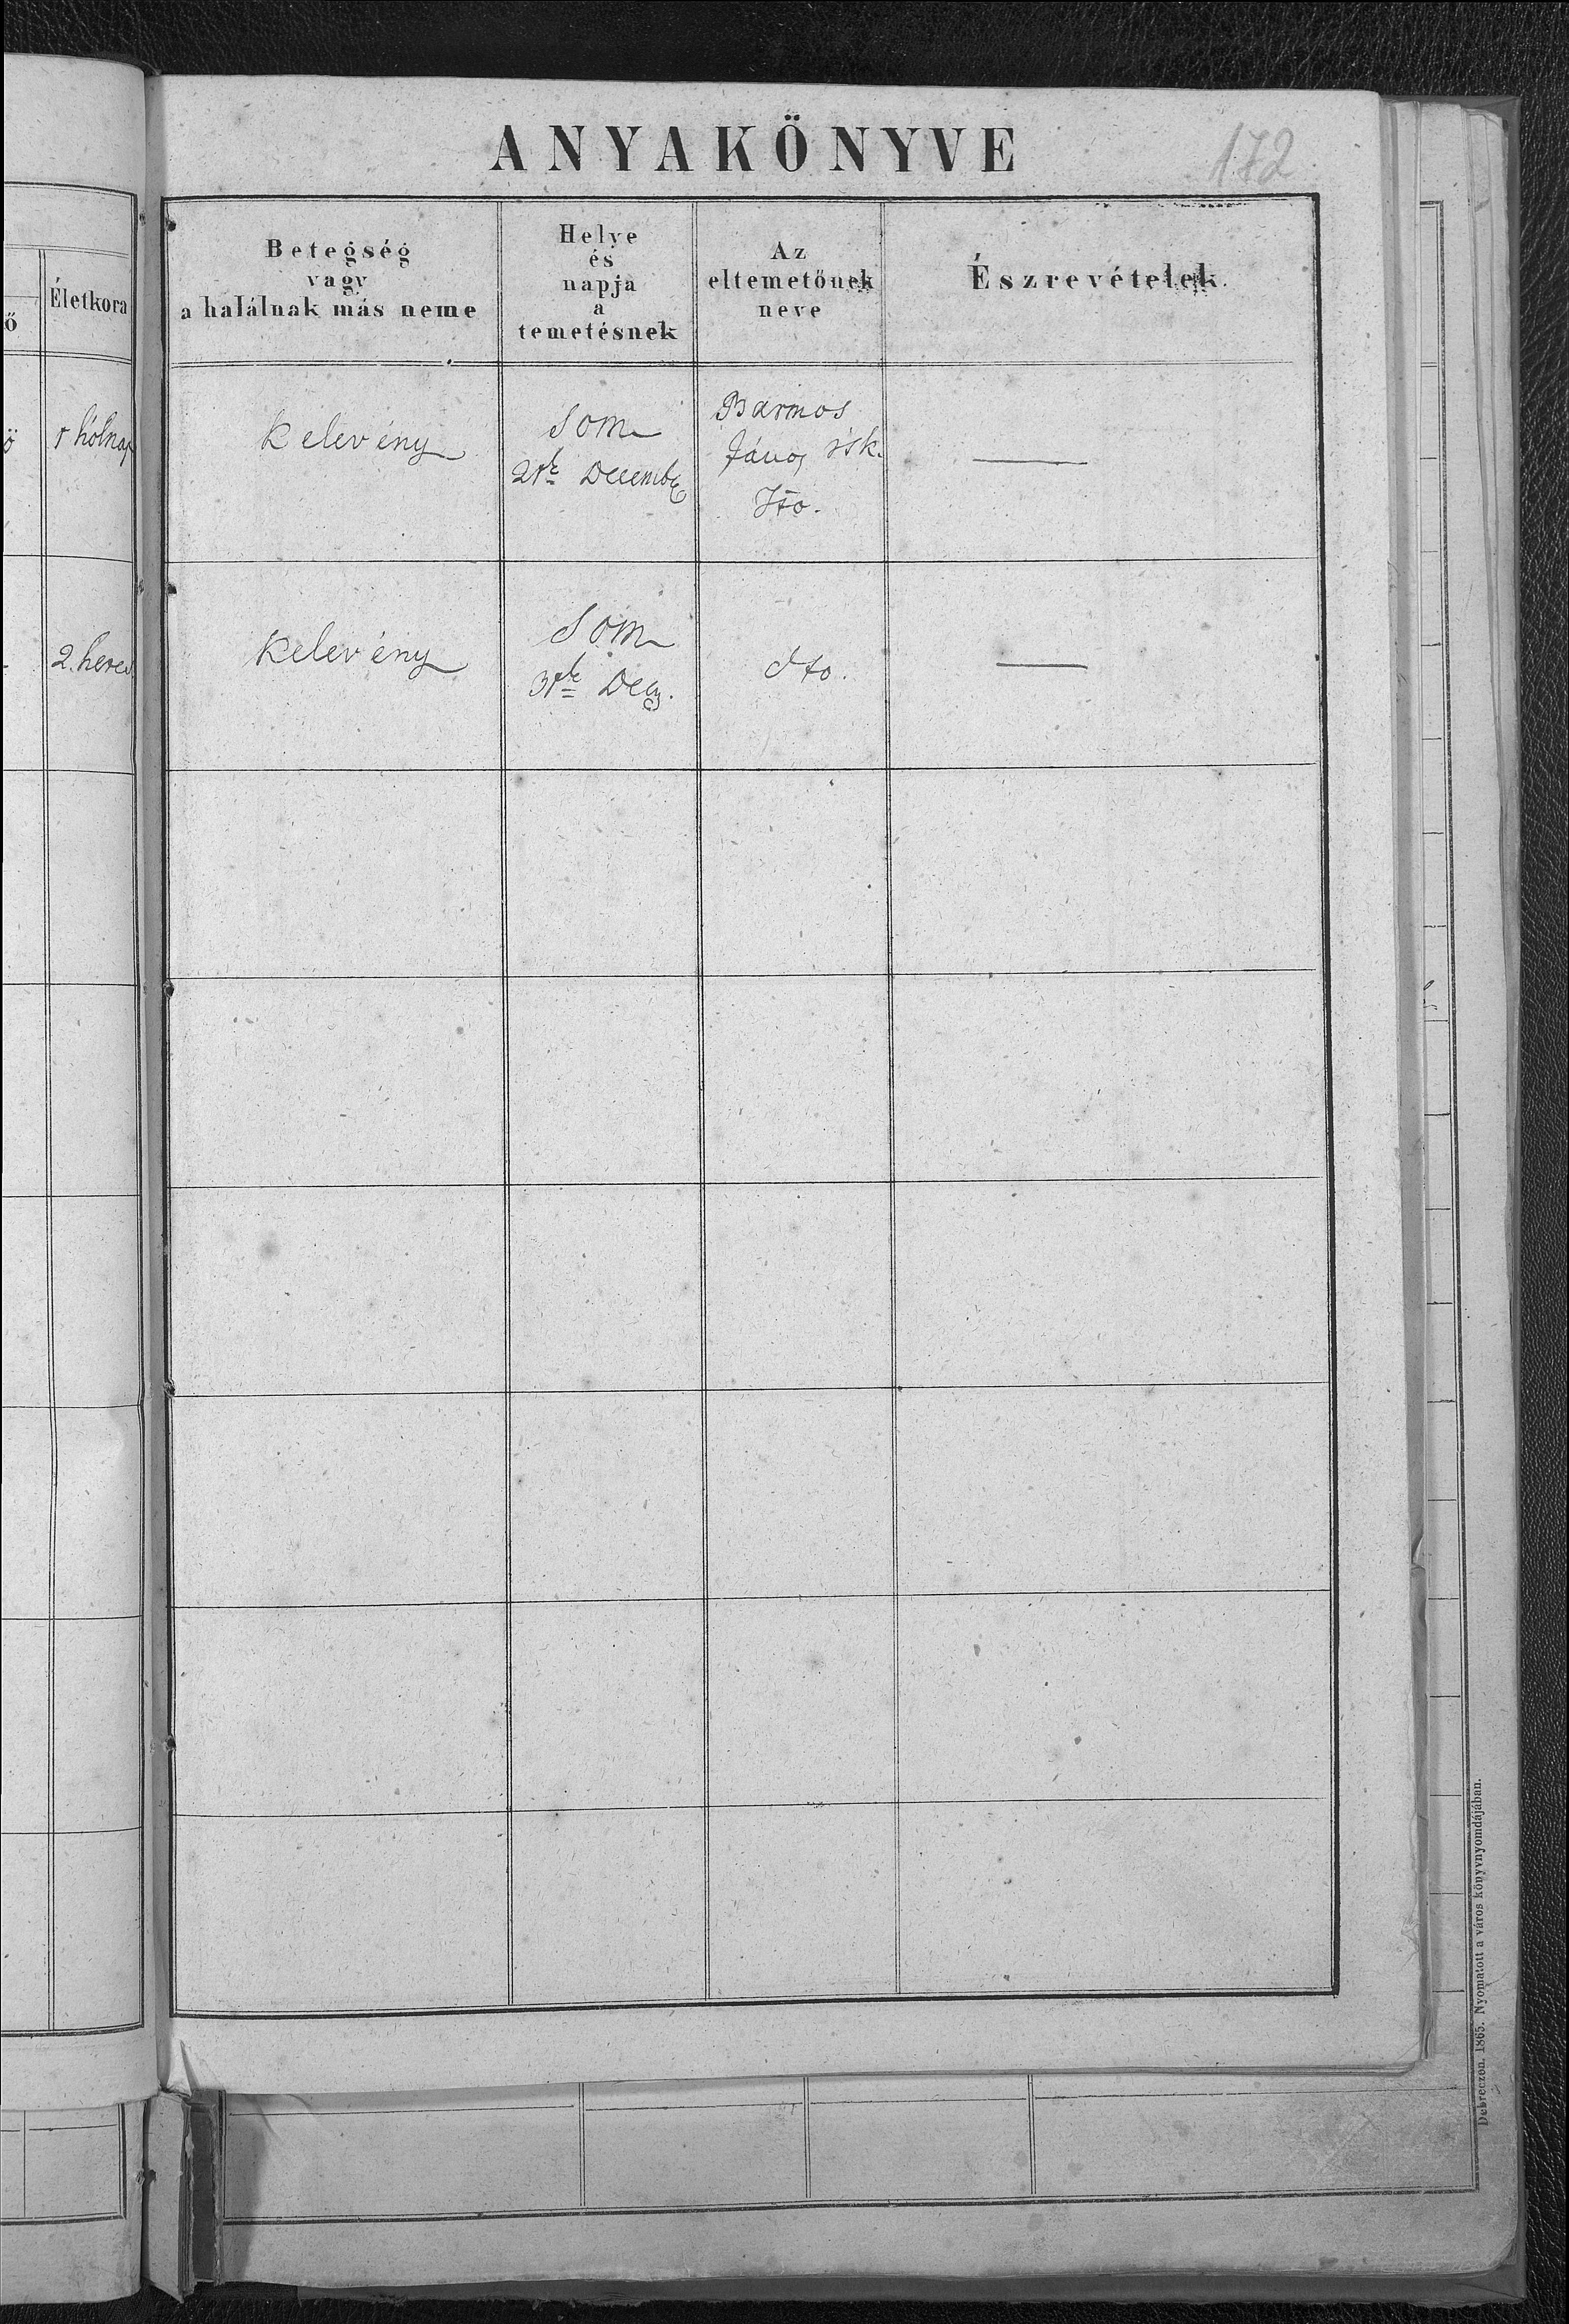 ANYAKÖNYVE
172
Életkora
Betegség
vagy
a halálnak más neme
Helye
és
napja
a
temetésnek
Az
eltemetőnek
neve
Észrevételek.
kelevény
Som
Decemb
Barmos
János isk.
2. hetes
kelevény
Som
dto.
Debreczen. 1865. Nyomatott a város könyvnyomdájában.